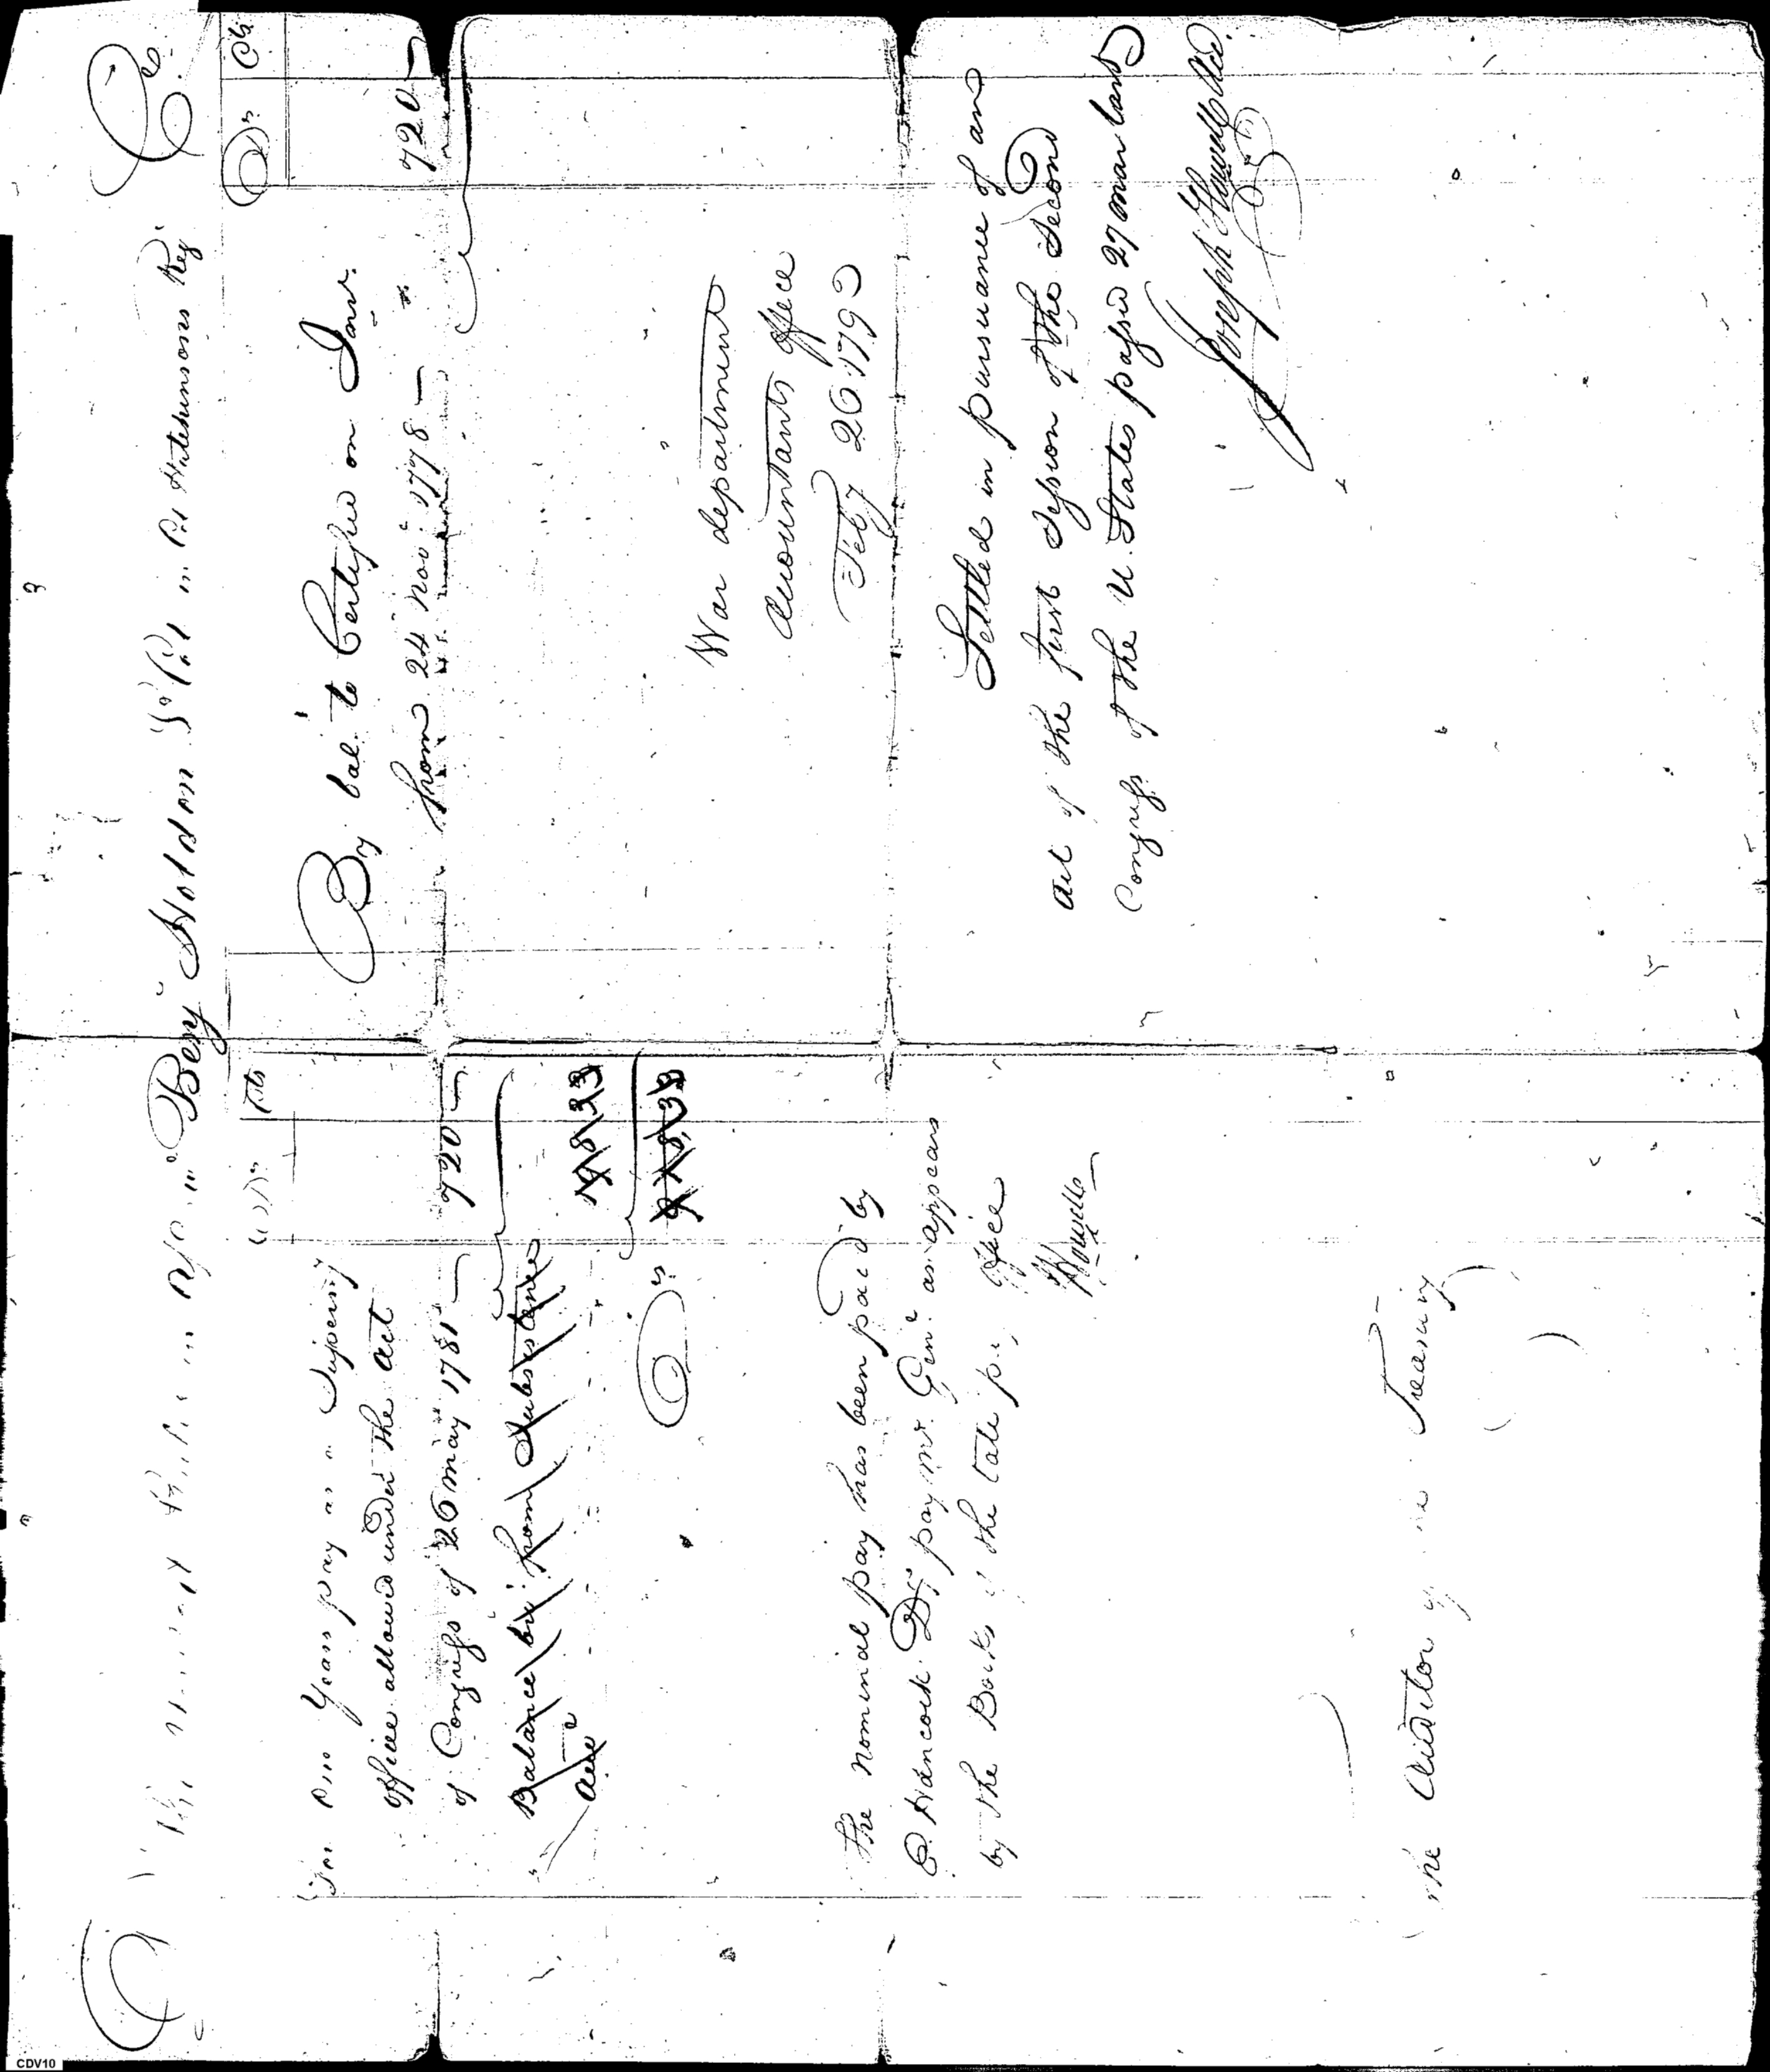 Dr
The United States in Acco. with Benj Holden Lt Col. in Col Hutchinsons Reg.
Cr
Dr. Cts
For One Years pay as a Supernry
Office allowed under the Act
of Congress of 26 may 1781
720
Balance brt. from Subsistence
Acct
The Nominal pay has been paid by
E. Hancock Dy. pay Mr. Genl. as appears
by the Books of the late pay office
J Howell
The Auditor of the Treasury
Dr. Cts
By bal. to Certifie on Intr.
from 24 Nov. 1778
720
War department
Accountants office
Feby 26 1793
Settled in pursuance of an
Act of the first Session of the Second
Congress of the U. States passed 27 Mar last
Joseph Howell
CDV10